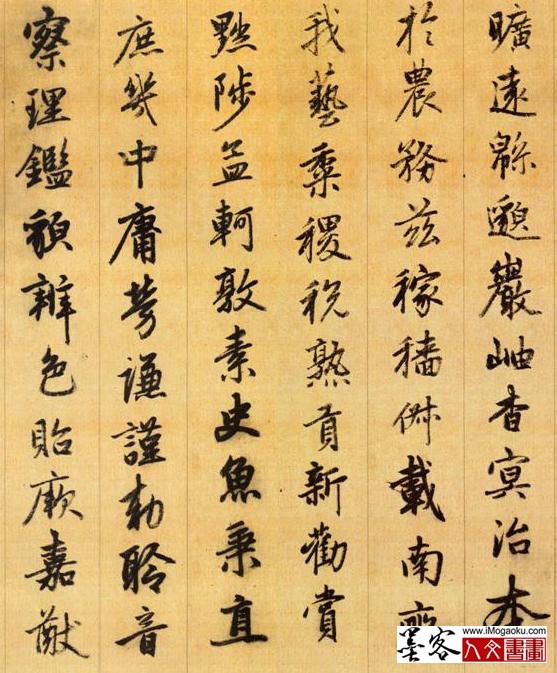 曠遠緜邈巖岫杳冥治本
於農務茲稼穡俶載南畝
我藝黍稷稅熟貢新勸賞
黜陟孟軻敦素史魚秉直
庶幾中庸勞謙謹勅聆音
察理鑑貌辨色貽厥嘉猷
墨客
www.iMogaoku.com
人文書畫